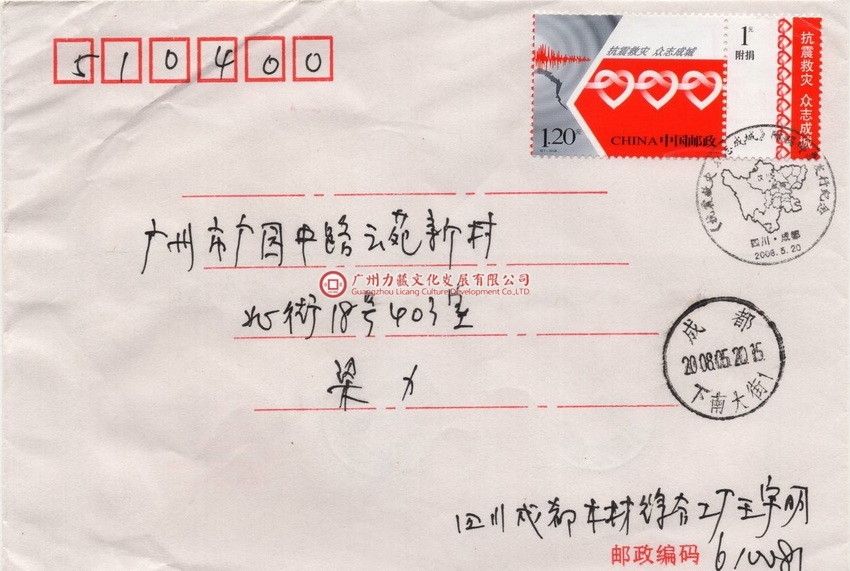 510400
抗震救灾 众志成城
1元
附捐
抗震救灾 众志成城
1.20元
CHINA中国邮政
四川·成都
2008.5.20
广州市广园中路云苑新村
广州力藏文化发展有限公司
Guangzhou Licang Culture Development Co.,LTD.
北街18号403室
梁力
成都
2008.05.20.15
下南大街1
四川成都木材综合工厂王宇明
邮政编码 610081